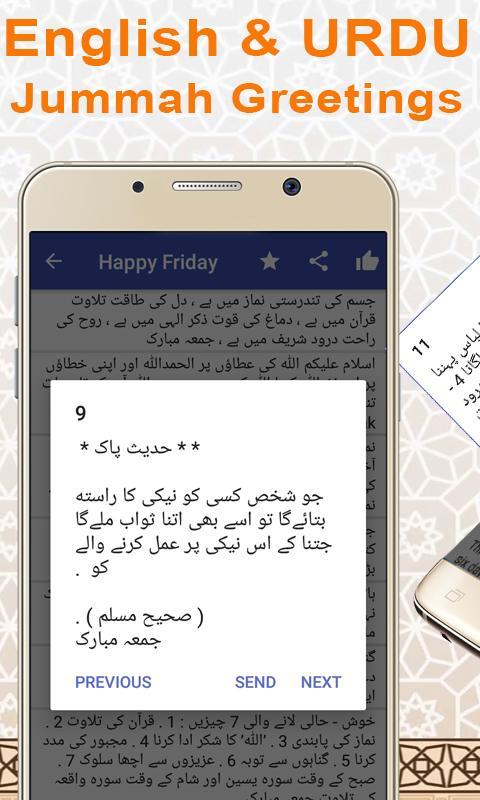 English & URDU
Jummah Greetings
Happy Friday
جسم کی تندرستی نماز میں ہے ، دل کی طاقت تلاوت
قرآن میں ہے ، دماغ کی قوت ذکر الہی میں ہے ، روح کی
راحت درود شریف میں ہے ، جمعہ مبارک
اسلام علیکم اللہ کی عطاؤں پر الحمداللہ اور اپنی خطاؤں
9
* * حدیث پاک *
جو شخص کسی کو نیکی کا راستہ
بتائےگا تو اسے بھی اتنا ثواب ملےگا
جتنا کے اس نیکی پر عمل کرنے والے
کو .
( صحیح مسلم ) .
جمعہ مبارک
PREVIOUS
SEND
NEXT
خوش - حالی لانے والی 7 چیزیں : 1 . قرآن کی تلاوت 2 .
نماز کی پابندی 3 . ’اللہ’ کا شکر ادا کرنا 4 . مجبور کی مدد
کرنا 5 . گناہوں سے توبہ 6 . عزیزوں سے اچھا سلوک 7 .
صبح کے وقت سورہ یسین اور شام کے وقت سورہ واقعہ
کی تلاوت جمعہ مبارک
11
لباس پہننا
4 -
درود
six da